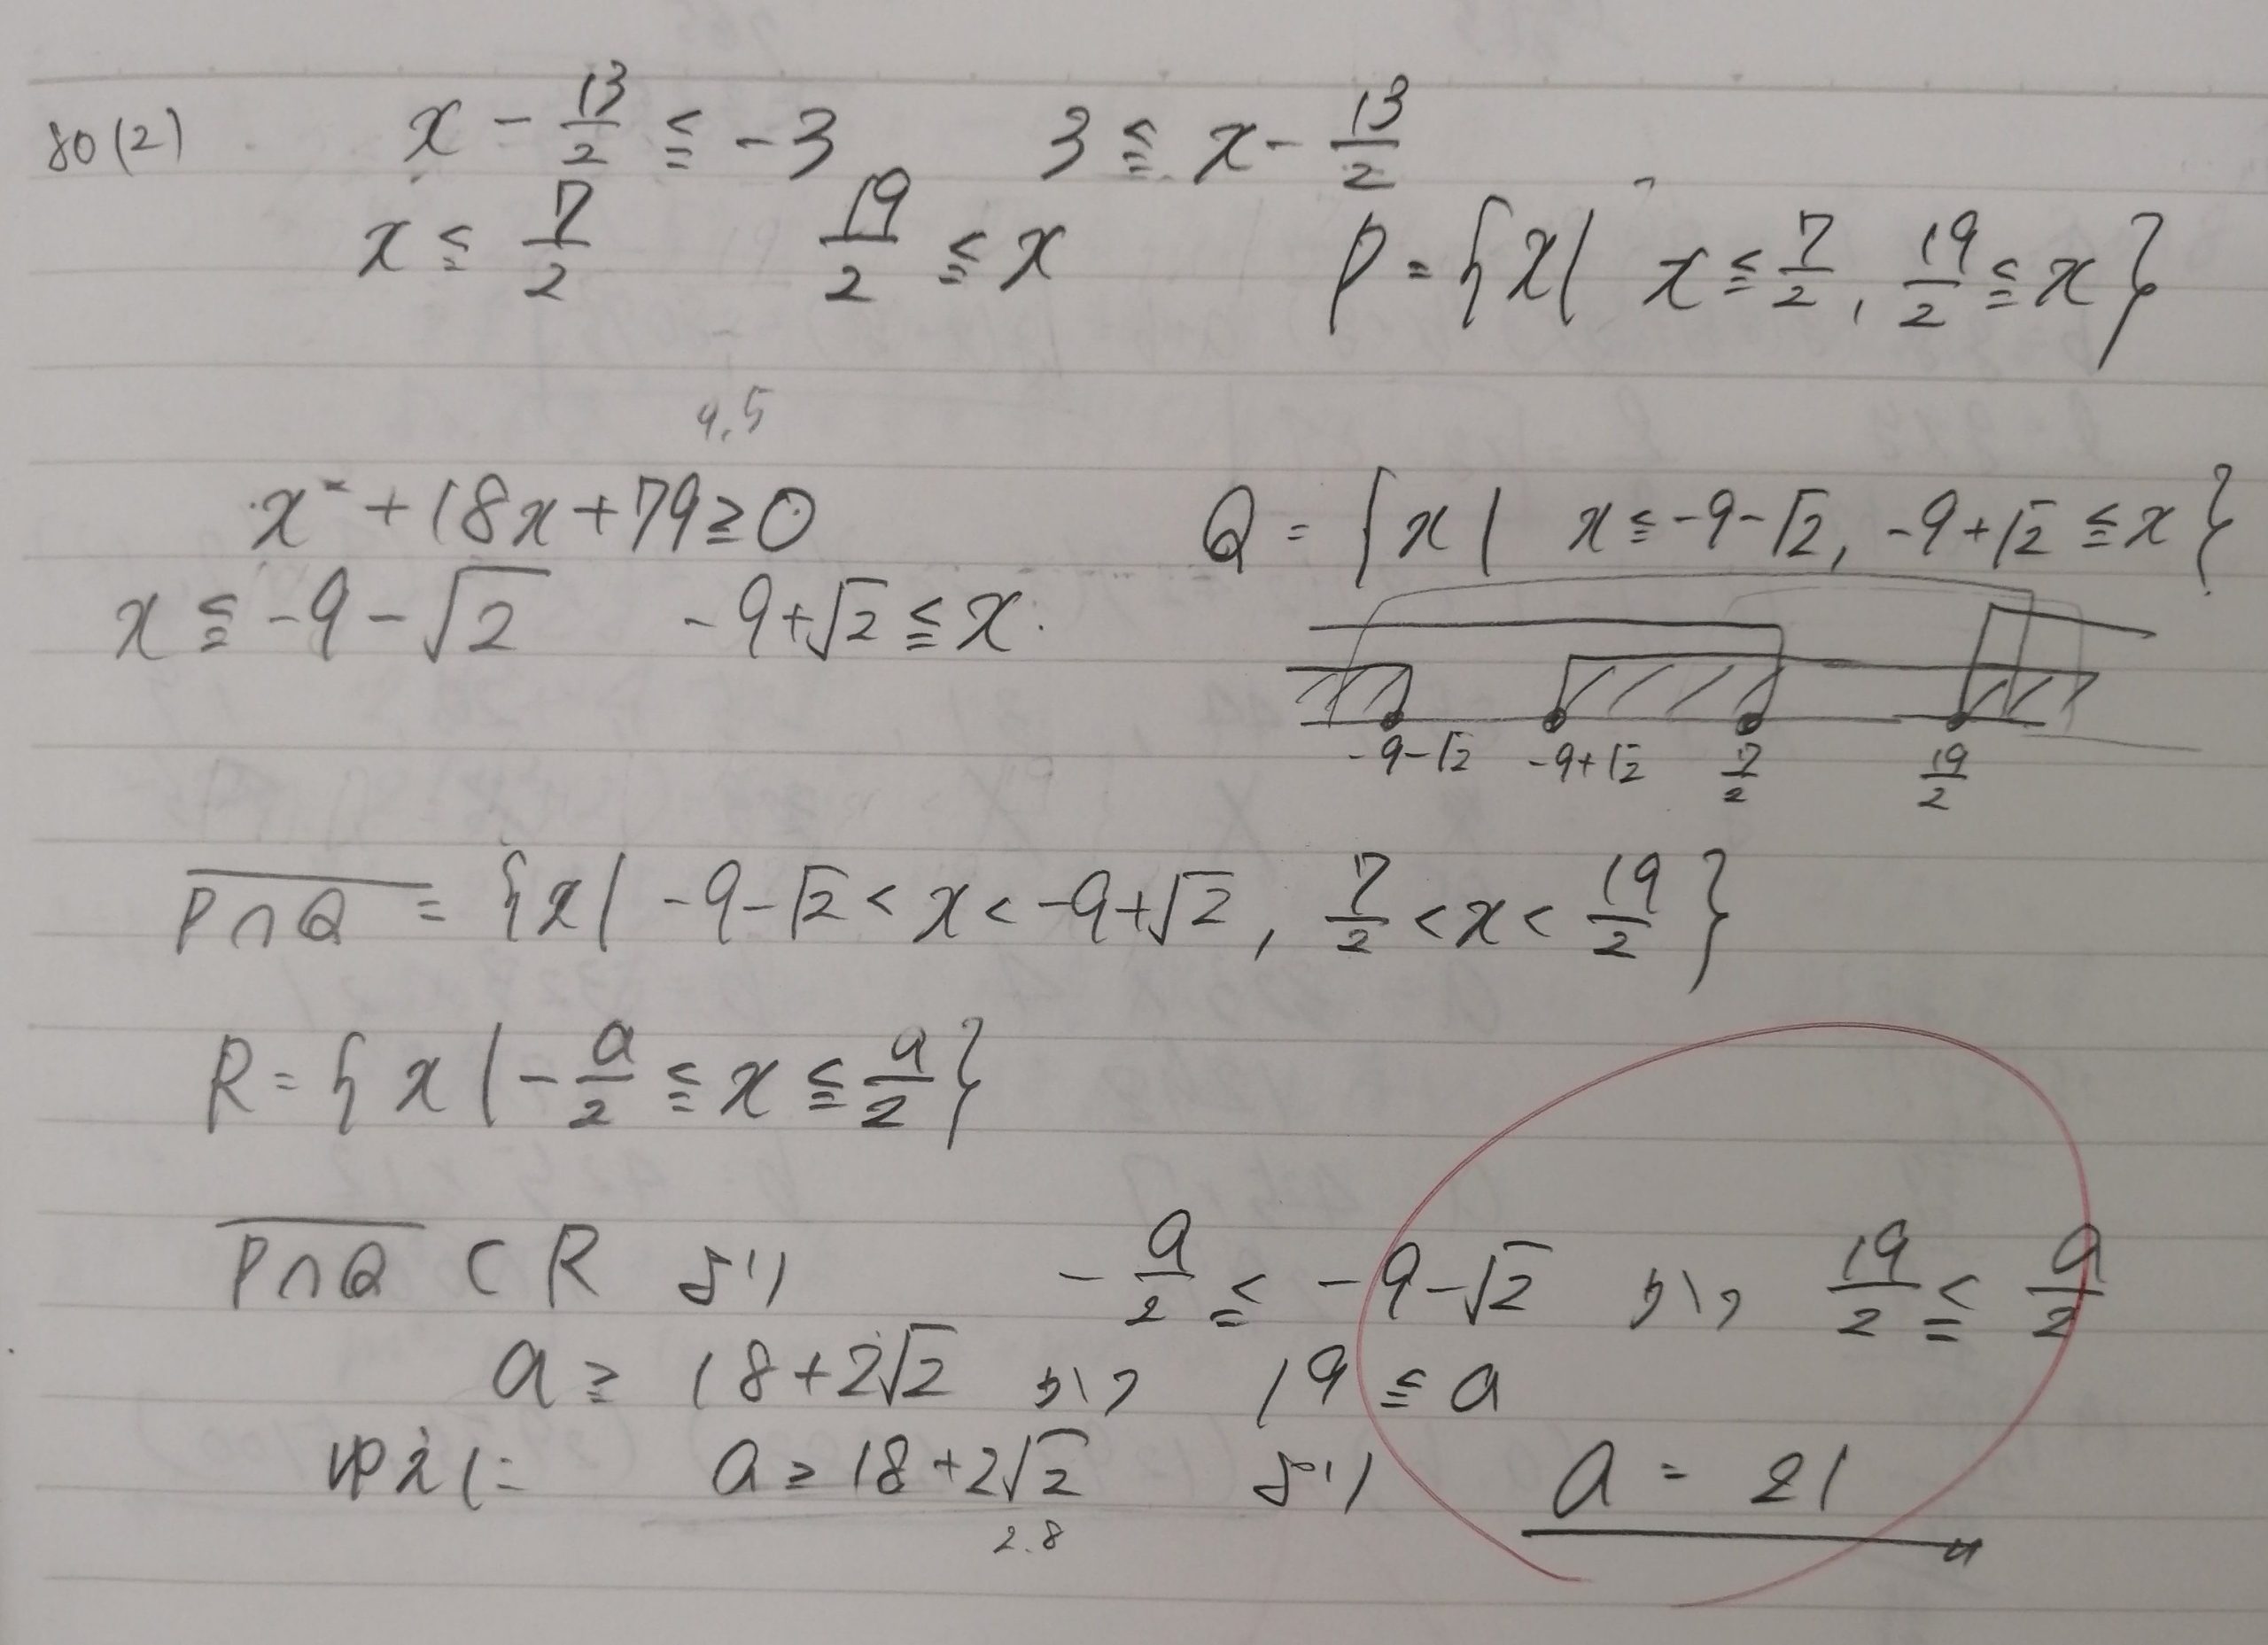 80(2) x - 13/2 ≦ -3 3 ≦ x - 13/2
x ≦ 7/2 19/2 ≦ x P = {x| x ≦ 7/2, 19/2 ≦ x}
9.5
x² + 18x + 79 ≧ 0 Q = {x| x ≦ -9-√2, -9+√2 ≦ x}
x ≦ -9-√2 -9+√2 ≦ x.
-9-√2 -9+√2 7/2 19/2
\overline{P∩Q} = {x| -9-√2 < x < -9+√2, 7/2 < x < 19/2}
R = {x| -a/2 ≦ x ≦ a/2}
\overline{P∩Q} ⊂ R より -a/2 ≦ -9-√2 かつ 19/2 ≦ a/2
a ≧ 18+2√2 かつ 19 ≦ a
ゆえに a ≧ 18+2√2 より a = 21
2.8